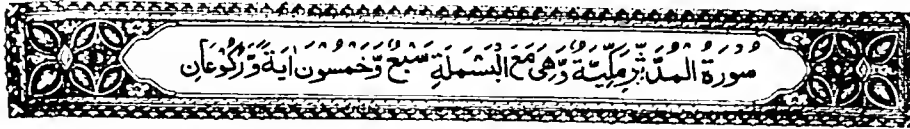 سُورَةُ الْمُدَّثِّرِ مَكِّيَّةٌ وَّهِيَ مَعَ الْبَسْمَلَةِ سَبْعٌ وَّخَمْسُونَ اٰيَةً وَّرُكُوعَانِ